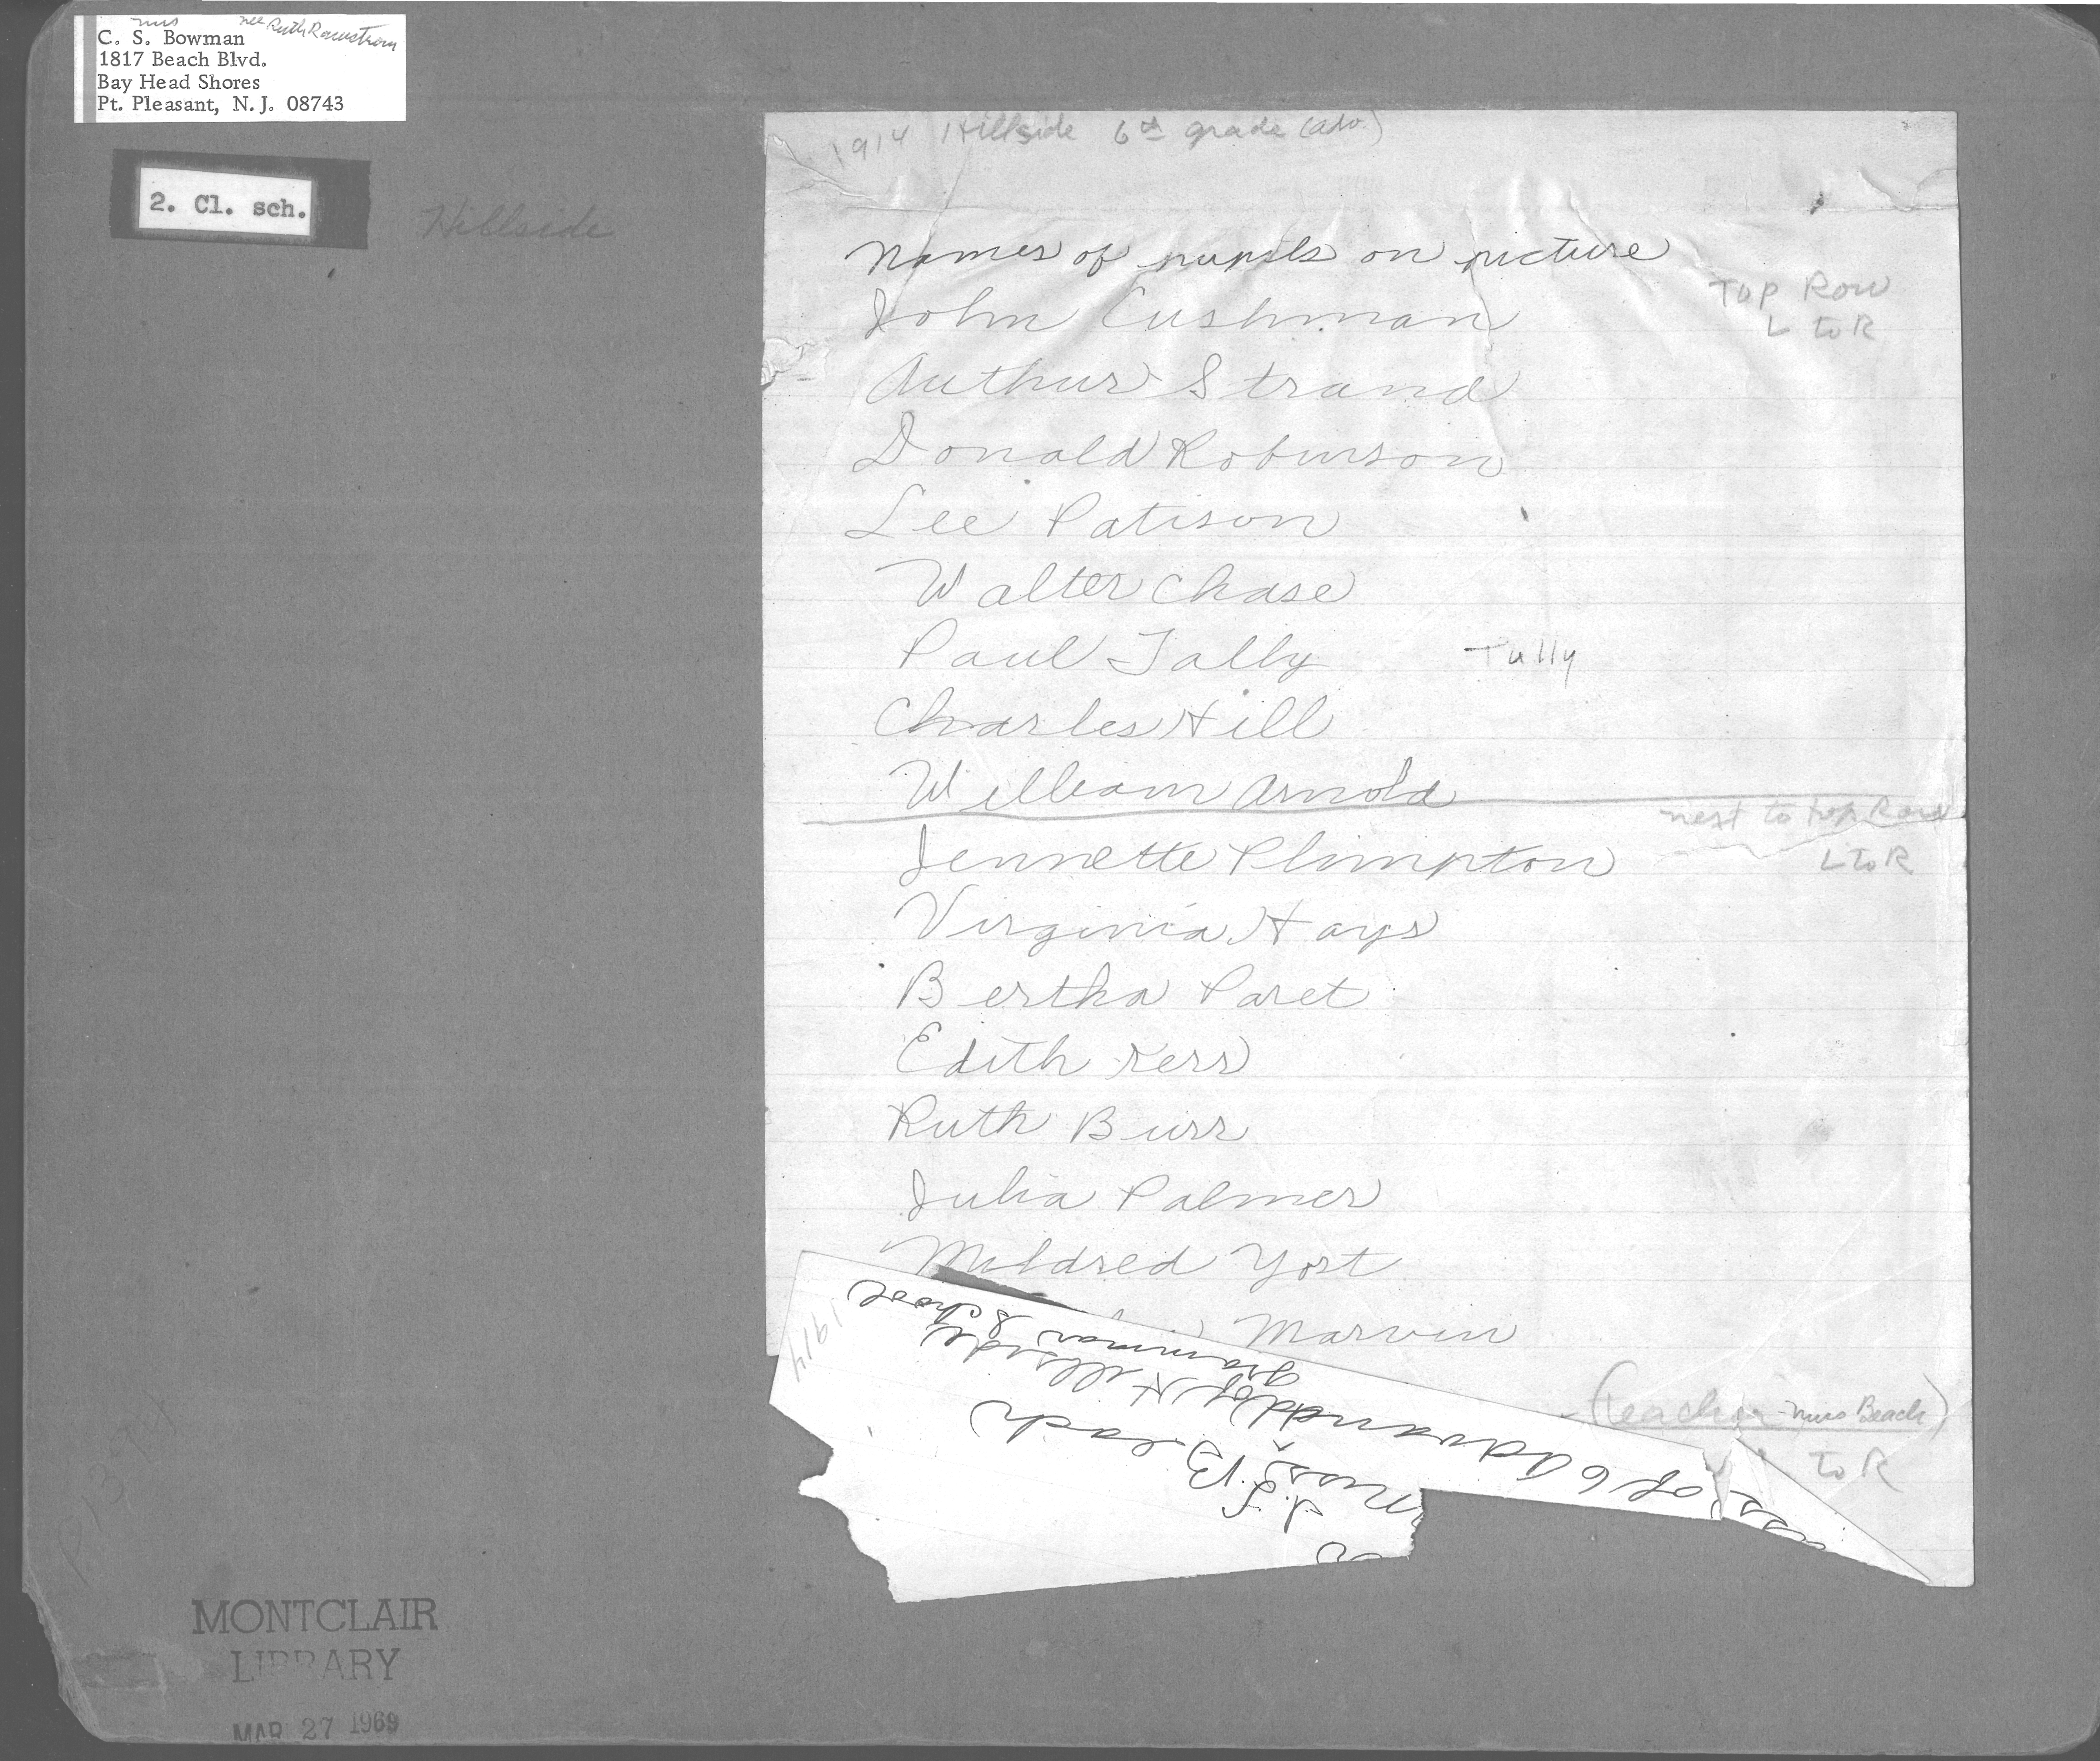 Mrs nee Ruth Rawstrom
C. S. Bowman
1817 Beach Blvd.
Bay Head Shores
Pt. Pleasant, N.J. 08743
2. Cl. sch.
Hillside
1914 Hillside 6th grade (adv.)
Names of pupils on picture
Top Row
L to R
John Cushman
Arthur Strand
Donald Robinson
Lee Patison
Walter Chase
Paul Tally Tully
Charles Hill
William Arnold
next to top Row
L to R
Jennette Plimpton
Virginia Hays
Bertha Paret
Edith Kerr
Ruth Burr
Julia Palmer
Mildred Yost
Marvin
(teacher Miss Beach)
to R
of 6 Advanced
of Hillside
Grammar School
1914
Miss
J. S. Beach
MONTCLAIR
LIBRARY
MAR 27 1969